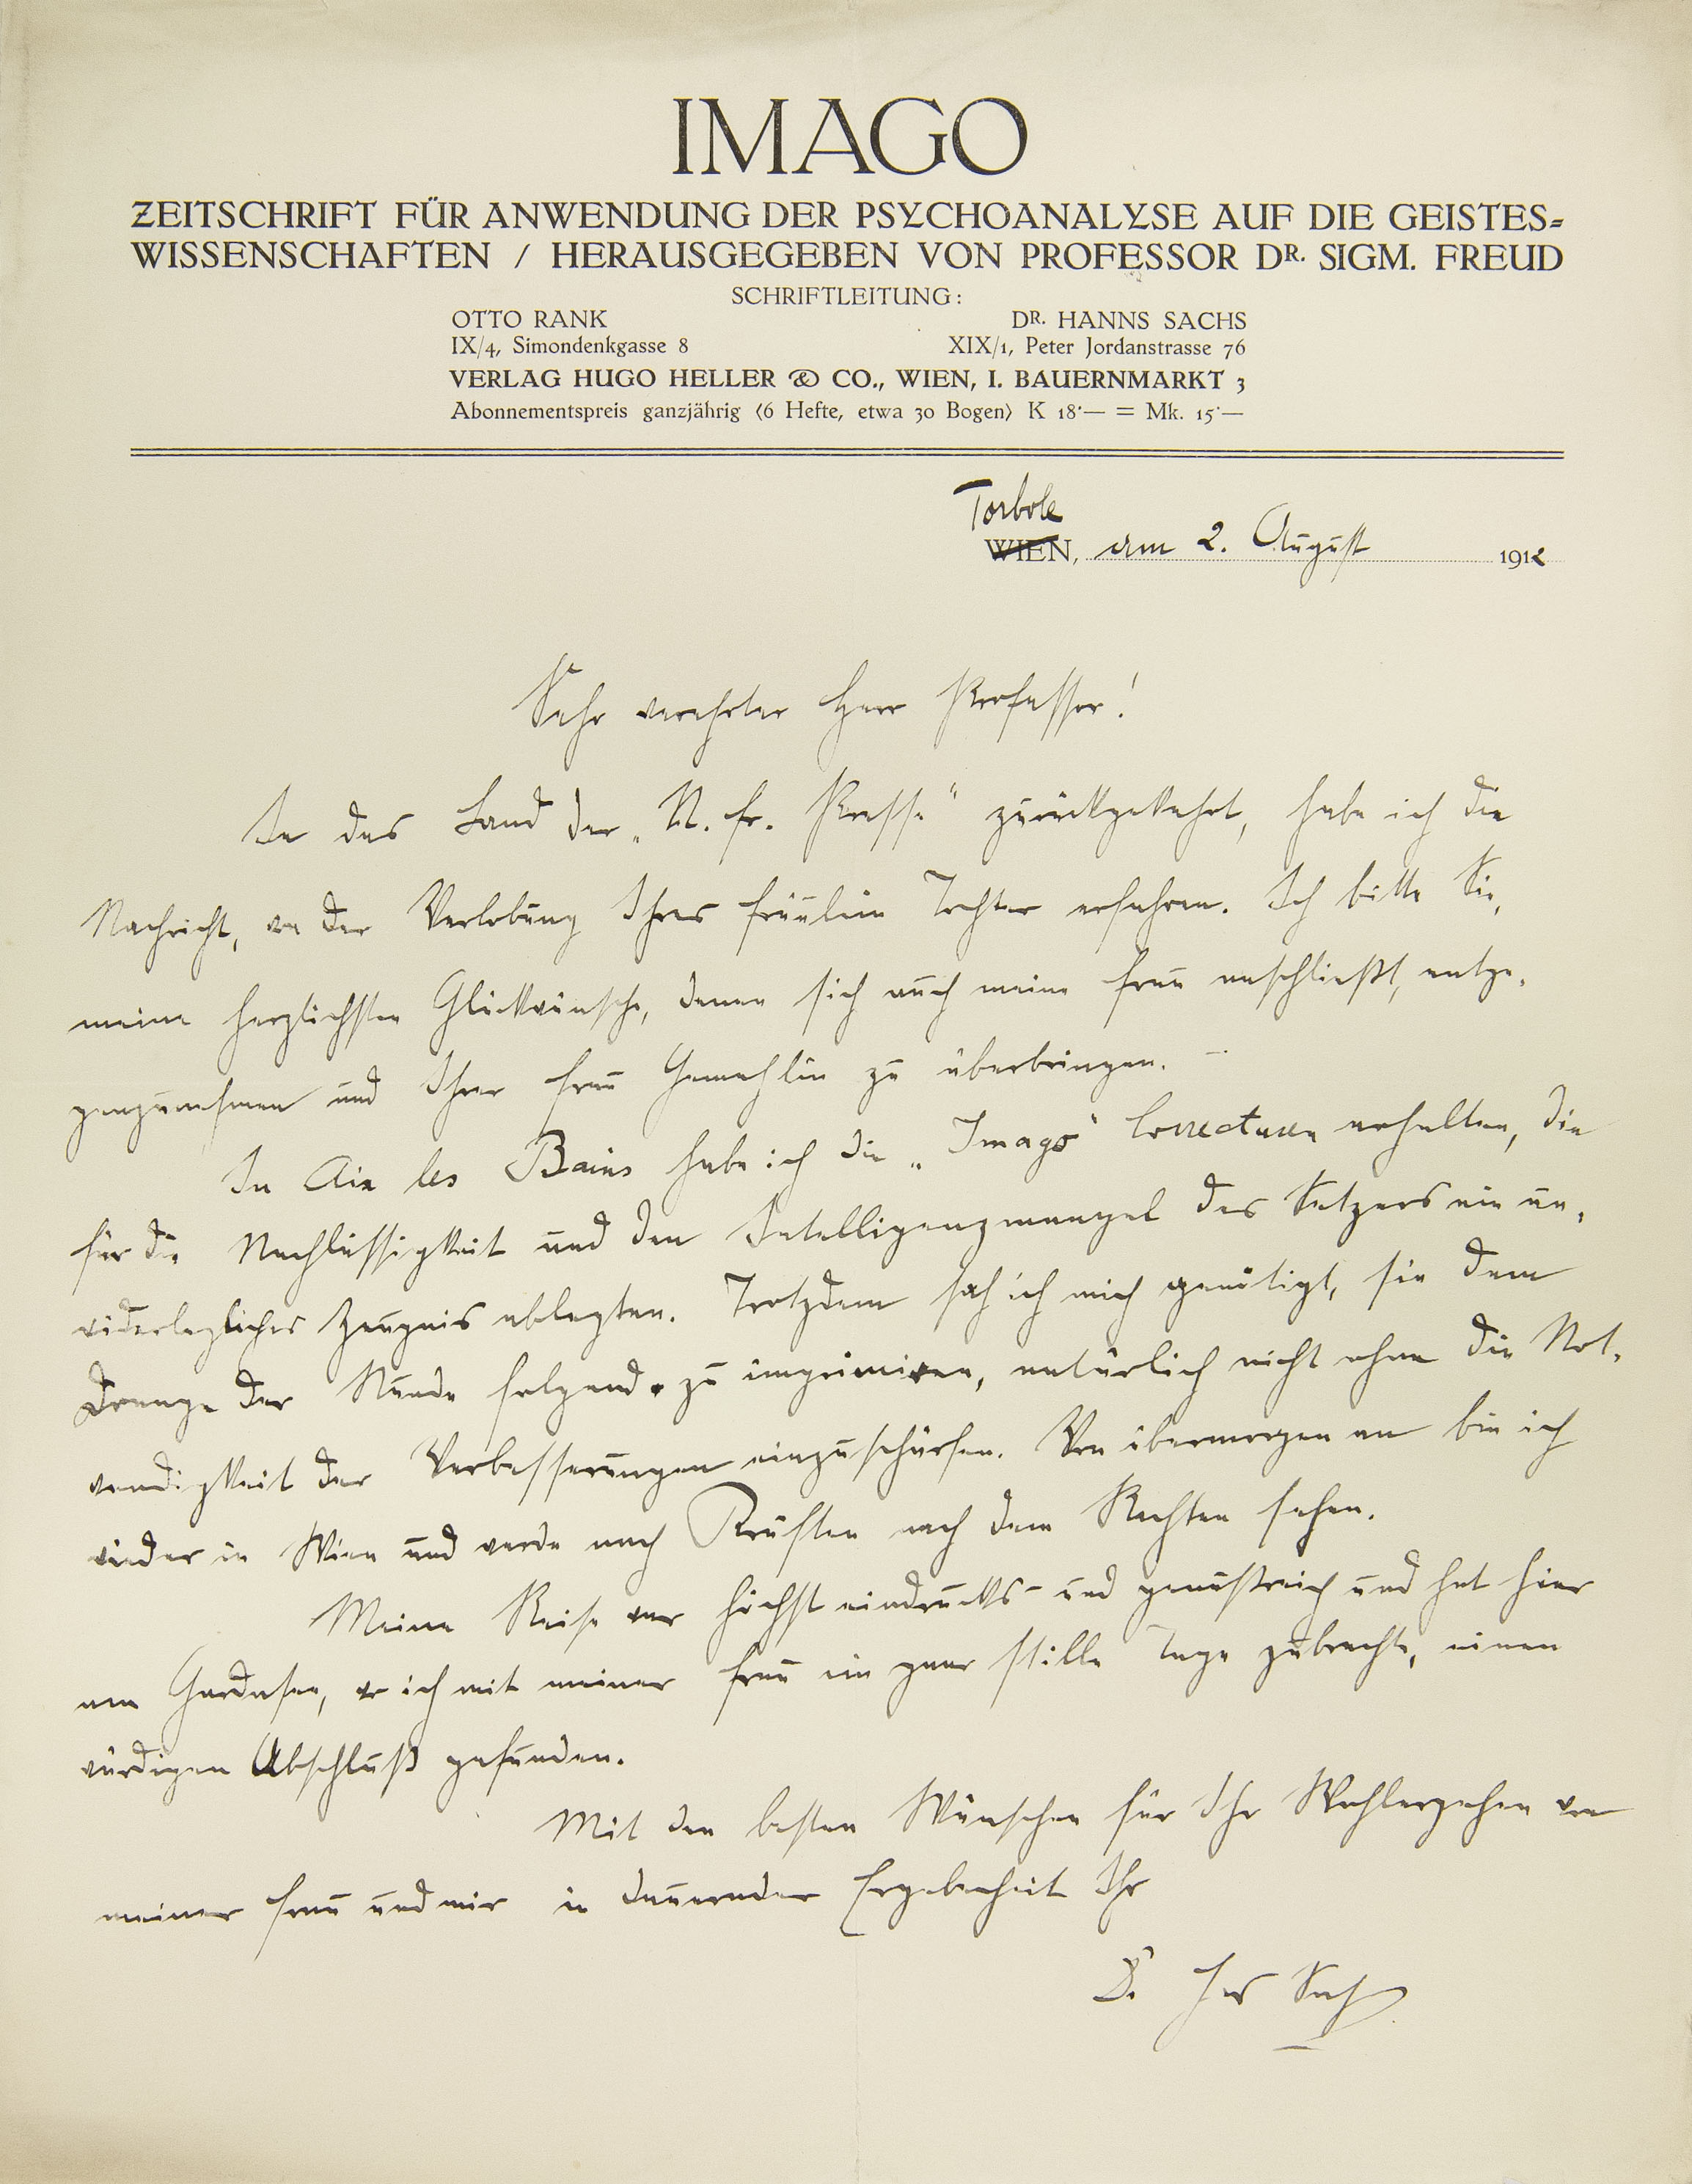 IMAGO
ZEITSCHRIFT FÜR ANWENDUNG DER PSYCHOANALYSE AUF DIE GEISTES=
WISSENSCHAFTEN / HERAUSGEGEBEN VON PROFESSOR DR. SIGM. FREUD
SCHRIFTLEITUNG:
OTTO RANK DR. HANNS SACHS
IX/4, Simondenkgasse 8 XIX/1, Peter Jordanstrasse 76
VERLAG HUGO HELLER & CO., WIEN, I. BAUERNMARKT 3
Abonnementspreis ganzjährig (6 Hefte, etwa 30 Bogen) K 18·— = Mk. 15·—
Torbole
WIEN, am 2. August 1912
Sehr verehrter Herr Professor!
In das Land der „N. fr. Presse“ zurückgekehrt, habe ich die
Nachricht, von der Verlobung Ihres Fräulein Tochter erfahren. Ich bitte Sie,
meine herzlichsten Glückwünsche, denen sich auch meine Frau anschließt, entge-
genzunehmen und Ihrer Frau Gemahlin zu überbringen. –
In Aix les Bains habe ich die „Imago“ Correcturen erhalten, die
für die Nachlässigkeit und den Intelligenzmangel des Setzers ein un-
widerlegliches Zeugnis ablegten. Trotzdem sah ich mich genötigt, sie dem
Drange der Stunde folgend zu imprimiren, natürlich nicht ohne die Not-
wendigkeit der Verbesserungen einzuschärfen. Von übermorgen an bin ich
wieder in Wien und werde nach Kräften nach dem Rechten sehen.
Meine Reise war höchst eindrucks- und genußreich und hat hier
am Gardasee, wo ich mit meiner Frau ein paar stille Tage zubrachte, einen
würdigen Abschluß gefunden.
Mit den besten Wünschen für Ihr Wohlergehen von
meiner Frau und mir in dauernder Ergebenheit Ihr
D. Hns Sachs